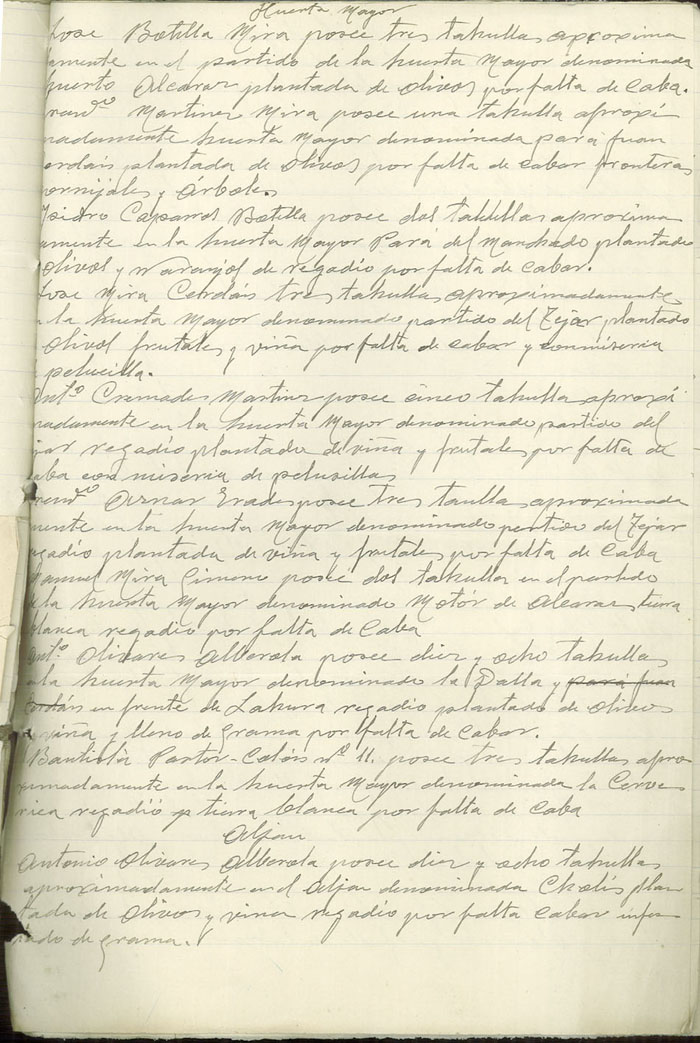 Huerta Mayor
Jose Botilla Mira posee tres tahullas aproxima
damente en el partido de la huerta Mayor denominada
huerto Alcaraz plantada de olivos por falta de caba.
Martinez Mira posee una tahulla aproxi
madamente huerta Mayor denominada pará Juan
Cerdán plantada de olivos por falta de cabar fronteras
cornijales y Árboles
Isidro Caparros Botilla posee dos tahullas aproxima
amente en la huerta Mayor Pará del Manchado plantado
olivos y naranjos de regadio por falta de cabar.
Jose Mira Cerdán tres tahullas aproximadamente
la huerta Mayor denominado partido del Tejar plantado
olivos frutales y viña por falta de cabar y con miseria
pelucilla.
Antº Cremades Martinez posee cinco tahulla aproxi
madamente en la huerta Mayor denominado partido del
jar regadio plantado de viña y frutales por falta de
caba con miseria de pelusillas
Aznar posee tres taulla aproximada
mente en la huerta Mayor denominado partido del Tejar
regadio plantada de viña y frutales por falta de Caba
Manuel Mira Gimeno posee dos tahulla en el partido
la huerta Mayor denominado Motór de Alcaras tierra
blanca regadio por falta de Caba
Antº. Olivares Alberola posee diez y ocho tahullas
la huerta Mayor denominado la Palla y pará Juan
Cerdán en frente de Lahura regadio plantado de olivos
viña y lleno de grama por falta de cabar.
Bautista Pastor-Colón nº 11. posee tres tahullas apro
ximadamente en la huerta Mayor denominada la Cerve
rica regadio tierra blanca por falta de Caba
Aljau
Antonio Olivares Alberola posee diez y ocho tahullas
aproximadamente en el Aljau denominada Cholis plan
tada de olivos y viña regadio por falta cabar infes
tado de grama.